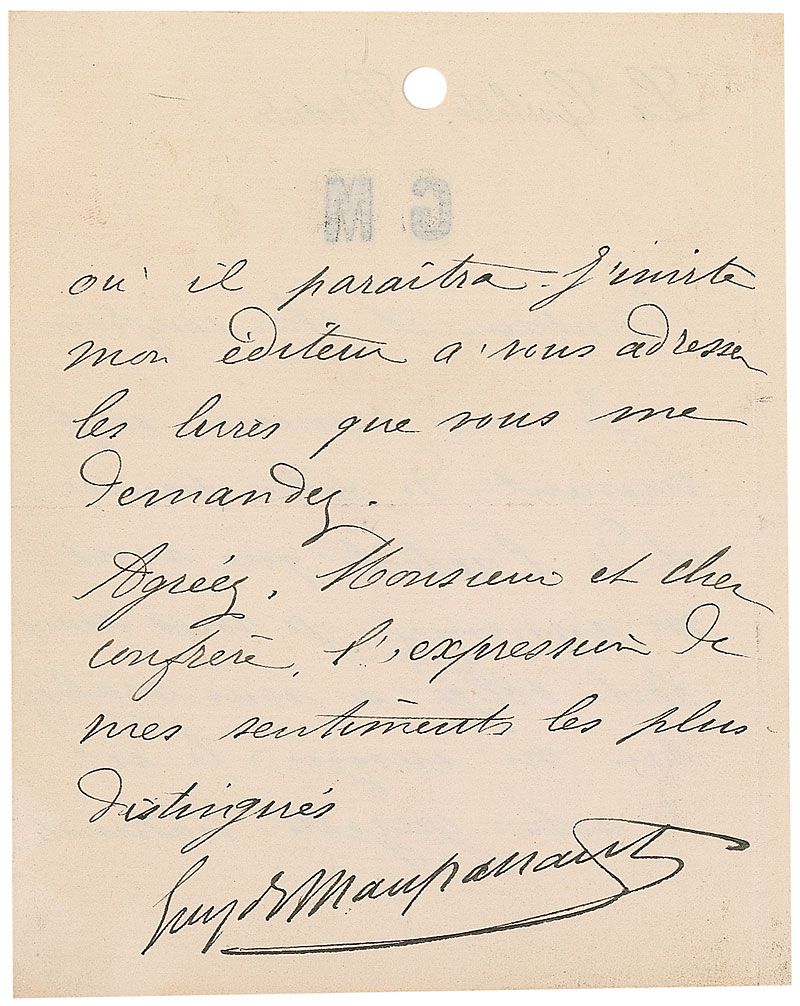 où il paraîtra. J'invite
mon éditeur à vous adresser
les livres que vous me
demandez.
Agréez, Monsieur et cher
confrère, l'expression de
mes sentiments les plus
distingués
Guy de Maupassant